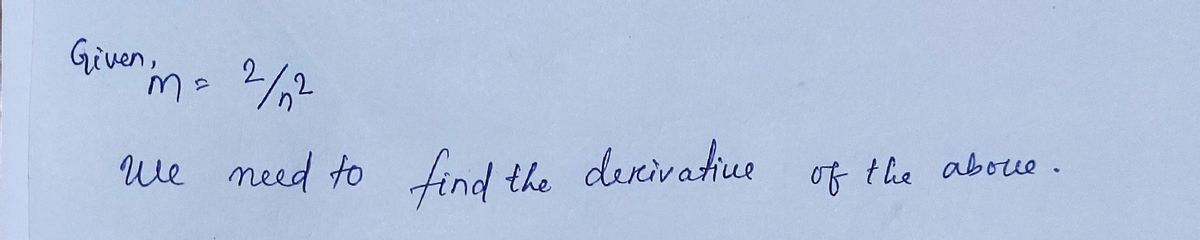 Given,
m = 2/n²
We need to find the derivative of the above.